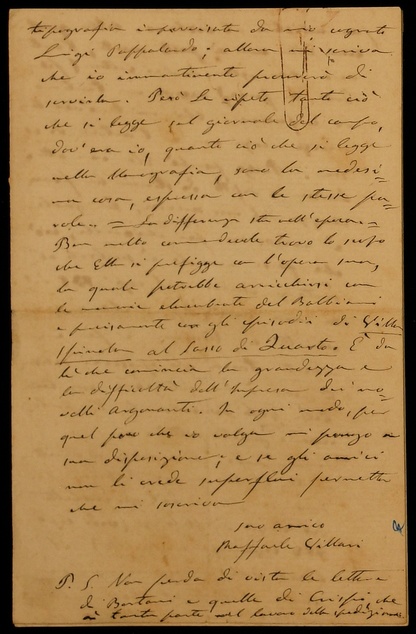 tipografia improvvisata da mio cognato
Luigi Pappalardo; allora mi scriva
che io immantinente procurerò di
servirla. Però Le ripeto tanto ciò
che si legge sul giornale del campo,
dov'era io, quanto ciò che si legge
nella Monografia, sono la medesi-
ma cosa, espressa con le stesse pa-
role. = La differenza sta nell'opera =
Ben molto commendevole trovo lo scopo
che Ella si prefigge con l'opera sua,
la quale potrebbe arricchirsi con
le memorie del Balbiani
e precisamente con gli episodii di Villa
Spinola al Sasso di Quarto. È da
lì che comincia la grandezza e
la difficoltà dell'Impresa dei no-
velli Argonauti. In ogni modo, per
quel poco che io valga mi pongo a
sua disposizione; e se gli amici
non li crede superflui permetta
che mi soscriva
suo amico
Raffaele Villari
P. S. Non perda di vista le lettere
di Bertani e quelle di Crispi, che
à tanta parte nel lavoro della spedizione